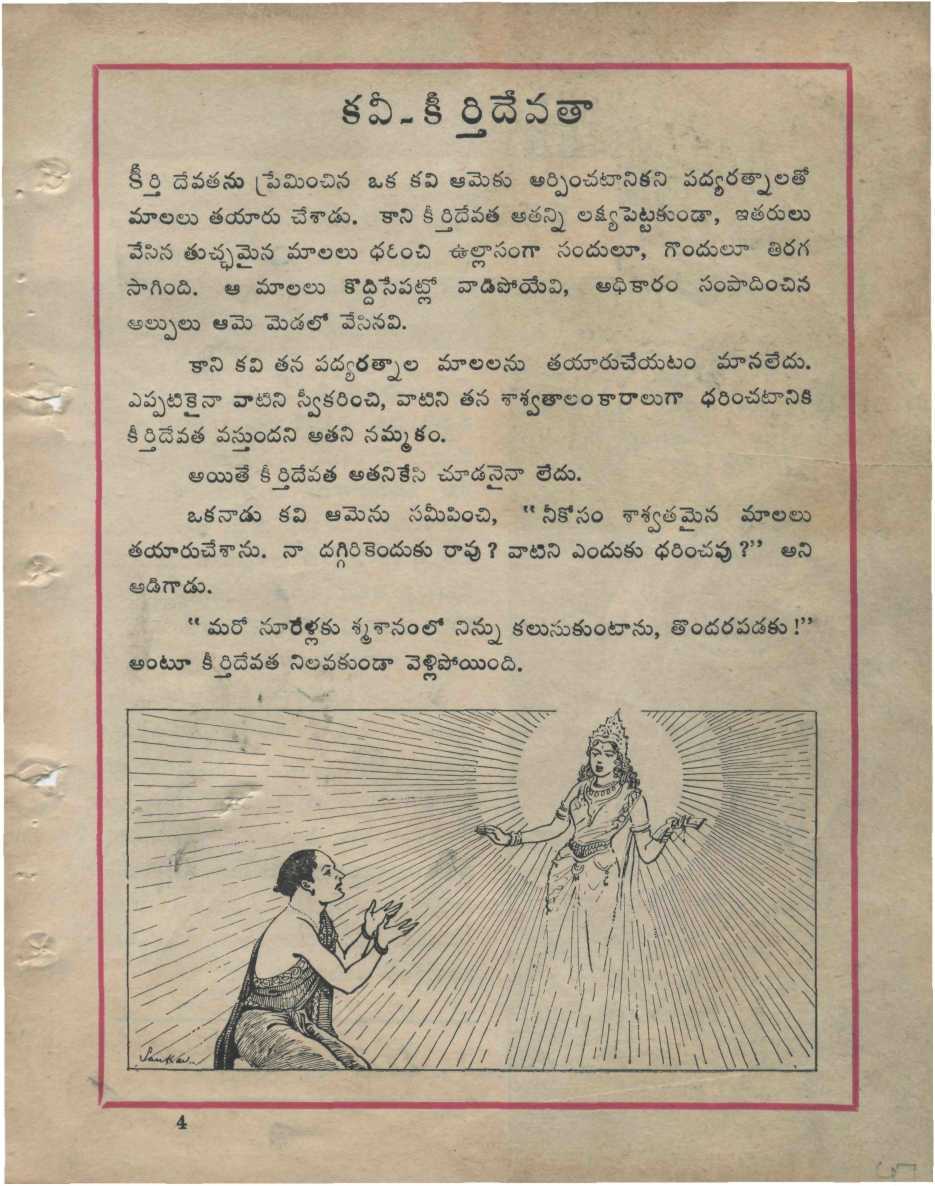 కవీ-కీర్తిదేవతా
కీర్తి దేవతను ప్రేమించిన ఒక కవి ఆమెకు అర్పించటానికని పద్యరత్నాలతో
మాలలు తయారు చేశాడు. కాని కీర్తిదేవత అతన్ని లక్ష్యపెట్టకుండా, ఇతరులు
వేసిన తుచ్ఛమైన మాలలు ధరించి ఉల్లాసంగా సందులూ, గొందులూ తిరగ
సాగింది. ఆ మాలలు కొద్దిసేపట్లో వాడిపోయేవి, అధికారం సంపాదించిన
అల్పులు ఆమె మెడలో వేసినవి.
కాని కవి తన పద్యరత్నాల మాలలను తయారుచేయటం మానలేదు.
ఎప్పటికైనా వాటిని స్వీకరించి, వాటిని తన శాశ్వతాలంకారాలుగా ధరించటానికి
కీర్తిదేవత వస్తుందని అతని నమ్మకం.
అయితే కీర్తిదేవత అతనికేసి చూడనైనా లేదు.
ఒకనాడు కవి ఆమెను సమీపించి, "నీకోసం శాశ్వతమైన మాలలు
తయారుచేశాను. నా దగ్గిరికెందుకు రావు? వాటిని ఎందుకు ధరించవు?" అని
అడిగాడు.
"మరో నూరేళ్లకు శ్మశానంలో నిన్ను కలుసుకుంటాను, తొందరపడకు!"
అంటూ కీర్తిదేవత నిలవకుండా వెళ్లిపోయింది.
Sankar
4